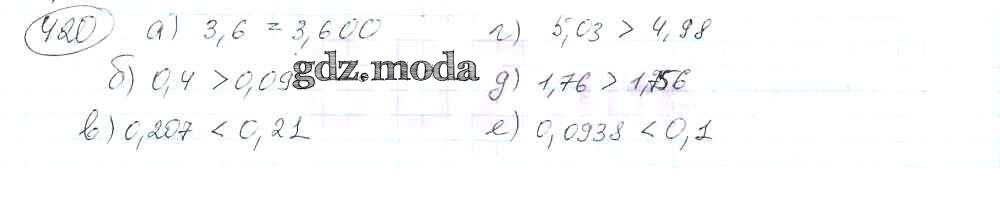 420 а) 3,6 = 3,600 г) 5,03 > 4,98
б) 0,4 > 0,09 gdz.moda д) 1,76 > 1,756
в) 0,207 < 0,21 е) 0,0938 < 0,1